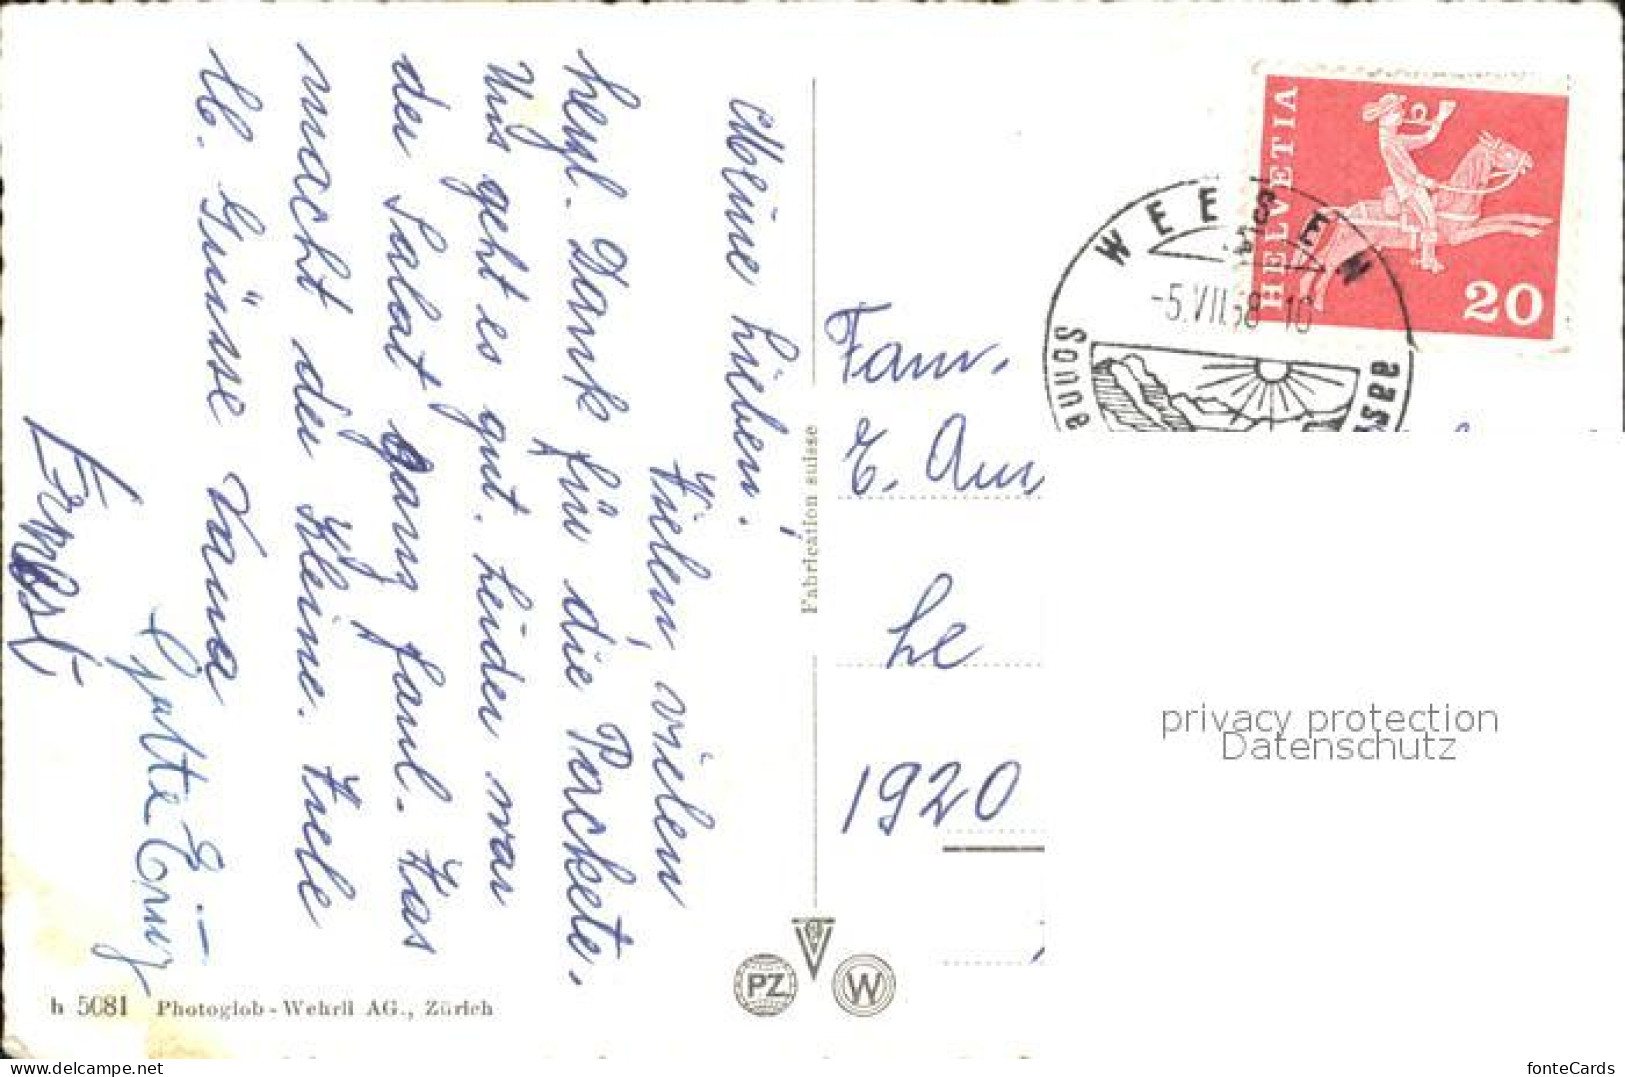 Meine Lieben!
Vielen, vielen
herzl. Dank für die Packete.
Uns geht es gut. Leider war
der Salat ganz faul. Was
macht die Kleine. Viele
lb. Grüsse
Ernst
Fabrication suisse
h 5081 Photoglob-Wehrli AG., Zürich
PZ
W
HELVETIA
20
WEESEN
-5.VII.68 10
Sonne
Fam.
E.
Le
1920
privacy protection
Datenschutz
www.delcampe.net
fonteCards